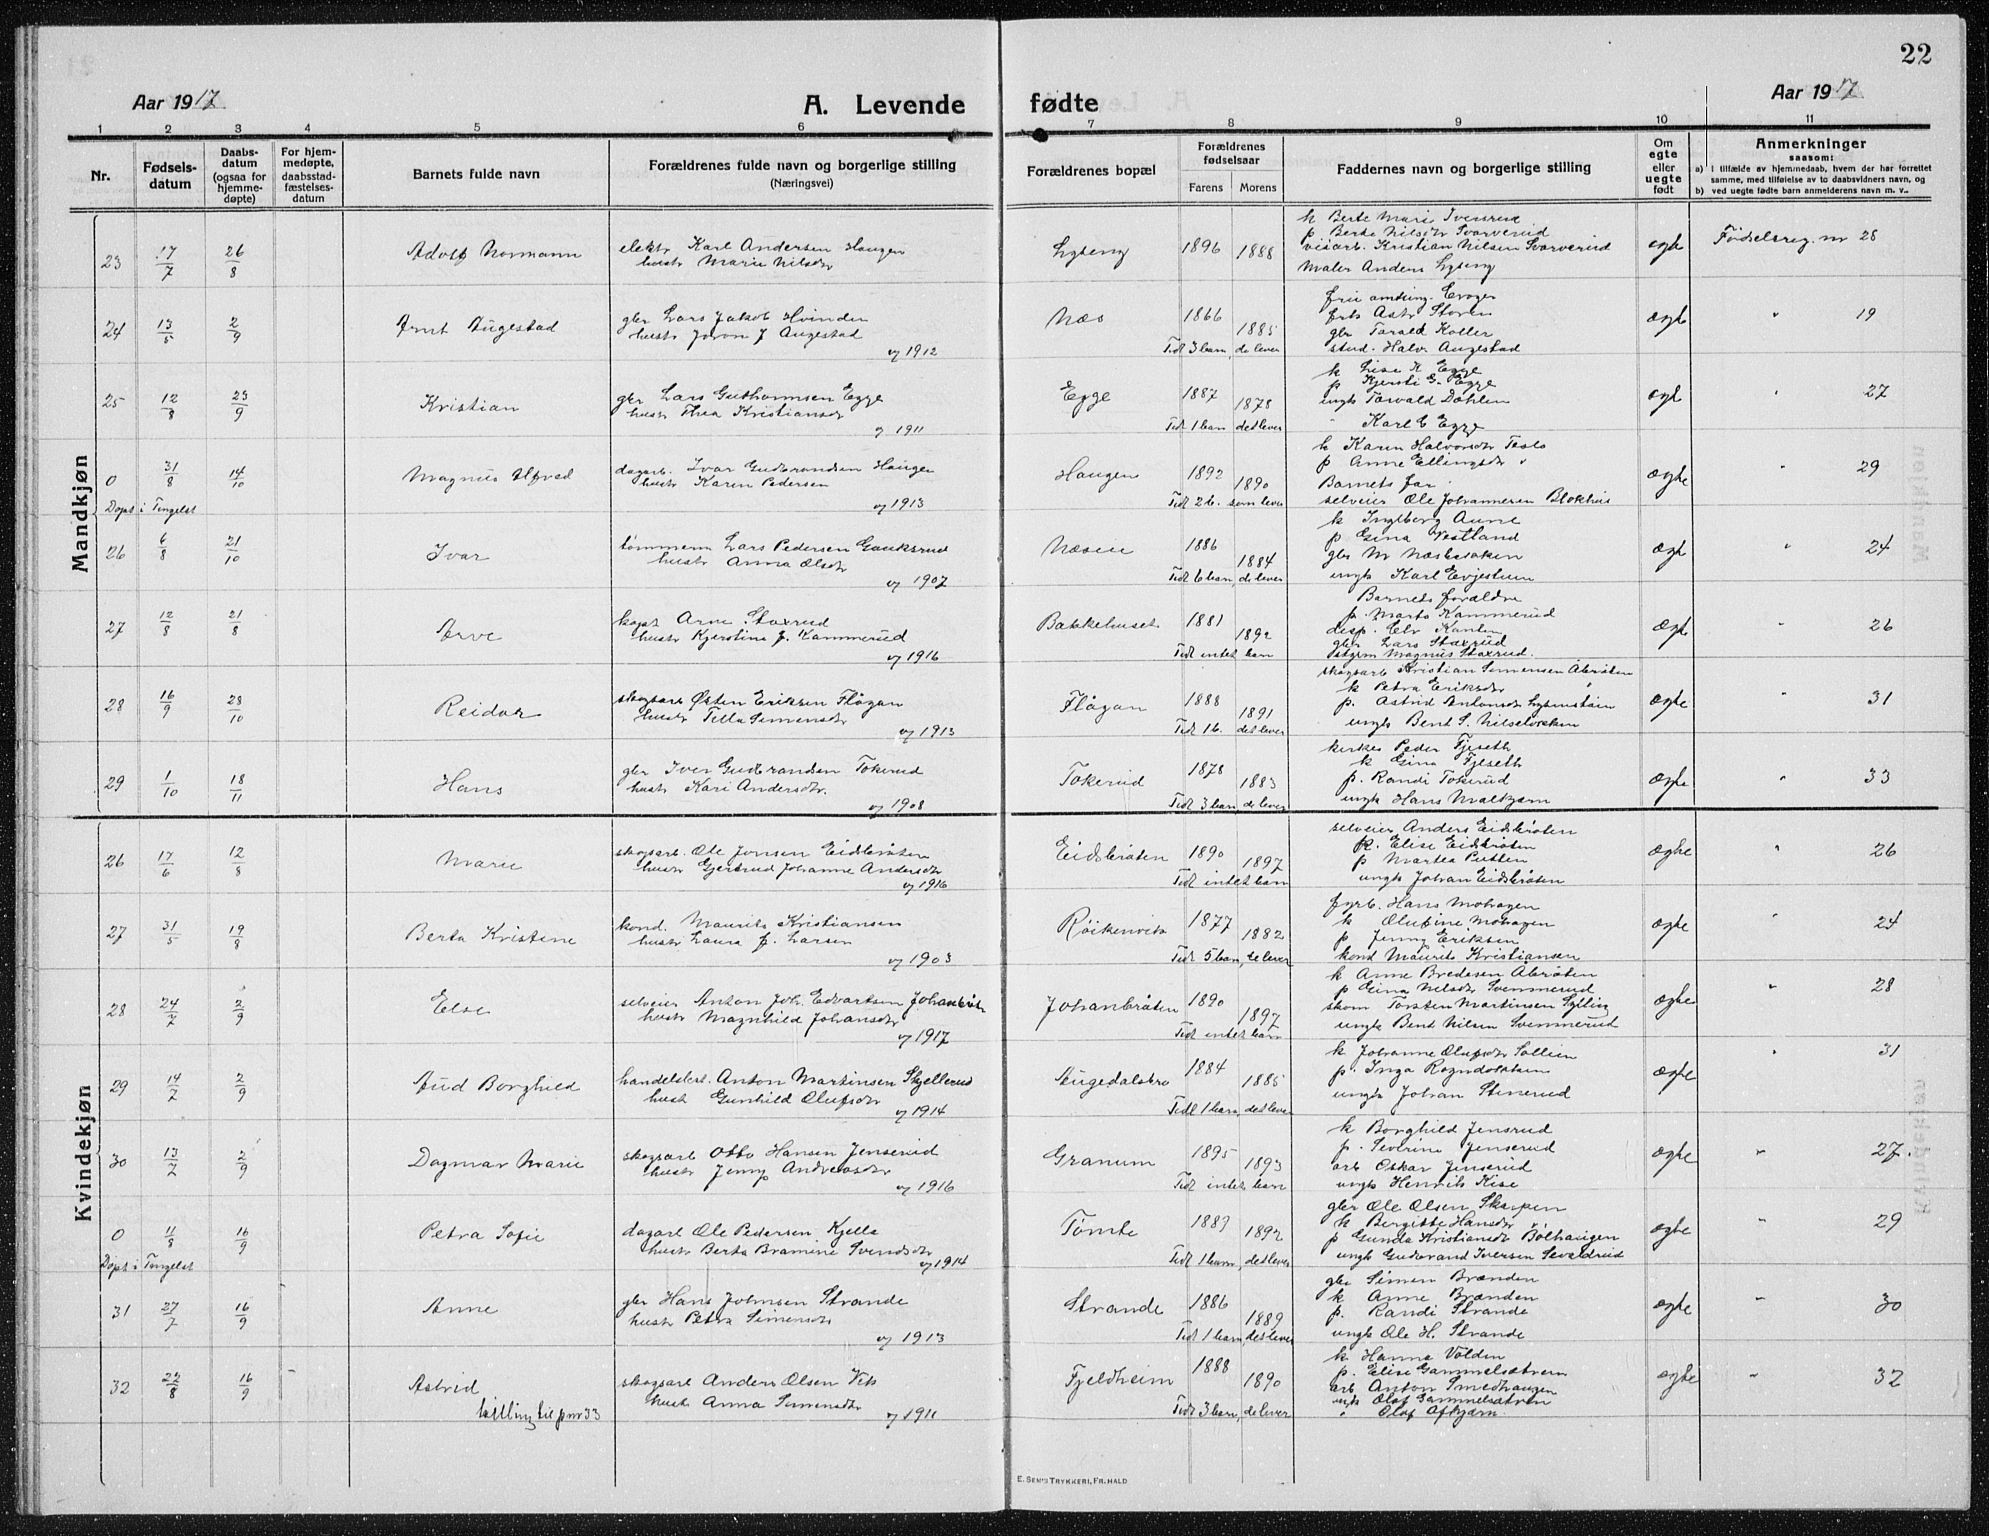 22
Aar 1917
A. Levende fødte
Aar 1917
1 2 3 4 5 6 7 8 9 10 11
Nr.
Fødsels-
datum
Daabs-
datum
(ogsaa for
hjemme-
døpte)
For hjem-
medøpte,
daabsstad-
fæstelses-
datum
Barnets fulde navn
Forældrenes fulde navn og borgerlige stilling
(Næringsvei)
Forældrenes bopæl
Forældrenes
fødselsaar
Farens Morens
Faddernes navn og borgerlige stilling
Om
egte
eller
uegte
født
Anmerkninger
saasom:
a) i tilfælde av hjemmedaab, hvem der har forrettet
samme, med tilføielse av to daabsvidners navn, og
b) ved uegte fødte barn anmelderens navn m. v..
Mandkjøn
23 17/7 26/8 Adolf Normann
elektr Karl Andersen Haugen
hustr Marie Nilsdr
Lyseng 1896 1888
k Berte Marie Iversrud
p. Berte Nilsdr Svarverud
veiarb. Kristian Nilsen Svarverud
Maler Anders Lyseng
egte Fødselsreg. nr 28
24 13/5 2/9 Arnt Augestad
gbr Lars Jakob Hvinden
hustr Joron J Augestad
vg 1912
Næs 1866 1885
Tidl 3 barn, de lever
frk Astr Støren
gbr Tarald Koller
stud. Halv. Augestad
ægte " 19
25 12/8 23/9 Kristian
gbr Lars Guthormsen Egge
hustr Thea Kristiansdr
vg 1911
Egge 1887 1878
Tidl 1 barn det lever
k Lise K Egge
p Kjersti G. Egge
ungk Torvald Dæhlen
" Karl G Egge
egt " 27
0 31/8 14/10 Magnus Alfred
Døpt i Tingelst
dagarb. Ivar Gudbrandsen Haugen
hustr Karen Pedersen
vg 1913
Haugen 1892 1890
Tidl 2 b. som lever
k Karen Halvorsdr Teslo
p Anne Ellingsdr "
Barnets far
selveier Ole Johannesen Blokhus
ægte " 29
26 6/8 21/10 Ivar
tømmerm Lars Pedersen Gauksrud
hustr Anna Olsdr
vg 1907
Næsen 1886 1884
Tidl 6 barn, de lever
k Ingeborg Aune
p Gina Vestland
gbr M Næsbakken
ungk Karl Evjestuen
ægt " 24
27 12/8 21/8 Arve
kapt Arne Staxrud
hustr Kjerstine f. Kammerud
vg 1916
Bakkehuset 1881 1892
Tidl intet barn
Barnets forældre
p. Marta Kammerud
disp. Elv Kanten
gbr Lars Staxrud
Magnus Staxrud.
ægt " 26
28 16/9 28/10 Reidar
skogsarb Østen Eriksen Flågan
hustr Tella Simensdr
vg 1913
Flågan 1888 1891
Tidl 1 b. det lever
skogsarb Kristian Simensen Åbråten
k Petra Eriksdr
p. Astrid Antonsdr
ungk Bent S. Nilsebakken
ægte " 31
29 1/10 18/11 Hans
gbr Iver Gudbrandsen Tokerud
hustr Kari Andersdr.
vg 1908
Tokerud 1878 1883
Tidl 3 barn, de lever
kirkes Peder Fjeseth
k Gina Fjeseth
p. Randi Tokerud
ungk Hans Maltzarn
ægte " 33
Kvindekjøn
26 17/6 12/8 Marie
skogsarb. Ole Jonsen Eidsbråten
hustr Gjertrud Johanne Andersdr
vg 1916
Eidsbråten 1890 1897
Tidl intet barn
selveier Anders Eidsbråten
k. Elise Eidsbråten
p Martea Putten
ungk Johan Eidsbråten
ægte " 26
27 31/5 19/8 Berta Kristine
kond. Maurits Kristiansen
hustr Laura f. Larsen
vg 1903
Røikenvik 1877 1882
Tidl 5 barn, de lever
fyrb. Hans Mohagen
k Olufine Mohagen
p Jenny Eriksen
kond Maurits Kristiansen
ægte " 24
28 24/7 2/9 Else
selveier Anton Joh. Edvartsen Johansbråt
hustr Magnhild Johansdr
vg 1917
Johansbråten 1890 1897
Tidl intet barn
k Anne Bredesen Åbråten
p Gina Nilsdr Svenmerud
skom Torsten Martinsen Sylling
ungk Bent Nilsen Svenmerud
ægte " 28
29 14/7 2/9 Aud Borghild
handelsbest. Anton Martinsen Skjellerud
hust Gunhild Olufsdr
vg 1914
Augedalsbro 1884 1885
Tidl 1 barn, det lever
k Johanne Olufsdr Sollien
p. Inga Rogndokken
ungk Johan Stenerud
ægte " 31
30 13/7 2/9 Dagmar Marie
skogsarb Otto Hansen Jenserud
hustr Jenny Andreasdr
vg 1916
Granum 1895 1893
Tidl intet barn
k Borghild Jensrud
p. Severine Jenserud
arb Oskar Jenserud
ungk Henrik Kise
ægte " 27.
0 11/8 16/9 Petra Sofie
Døpt i Tingelst
dagarb Ole Pedersen Kjelle
hustr Berta Bramine Svendsdr
vg 1914
Tømte 1889 1892
Tidl 1 barn, det lever
gbr Ole Olsen Skarpen
k Bergitte Hansdr
p Gunda Kristiansdr Bølhaugen
ungk Gudbrand Iversen Sevaldrud
ægte " 29
31 27/7 16/9 Anne
gbr Hans Johnsen Strande
hustr Petra Simensdr
vg 1913
Strande 1886 1889
Tidl 1 barn, det lever
gbr Simen Brænden
k Anne Brænden
p. Randi Strande
ungk Ole H. Strande
ægte " 30
32 22/8 16/9 Astrid
tvilling til p nr 33
skogsarb Anders Olsen Vik
hustr Anna Simensdr
vg 1911
Fjeldheim 1888 1890
Tidl 3 barn, de lever
k Hanna Volden
p. Elise Gammelsætren
arb Anton Smedhaugen
ungk Olaf Gammelsætren
" Olaf Afkjærn.
ægte " 32
E. SEM'S TRYKKERI, FR.HALD